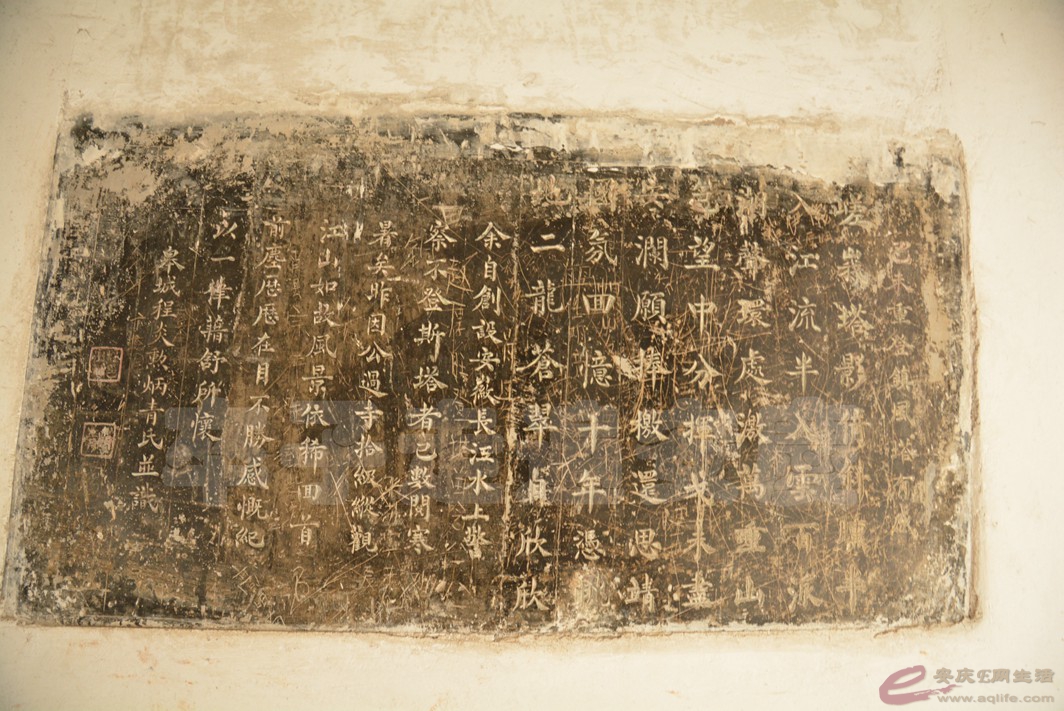 己未重登鎮風塔有感
塔影斜
入江流半入雲兩派
聲環處激萬重山
望中分揮戈未盡
瀾願捧檄還思靖
氛回憶十年憑
二龍蒼翠欣欣
余自創設安徽長江水上警
察不登斯塔者已數閱寒
暑矣昨因公過寺拾級縱觀
江山如故風景依稀回首
前塵歷歷在目不勝感慨紀
以一律藉舒所懷
皋城程炎勳炳青氏並識
安庆E网生活
www.aqlife.com